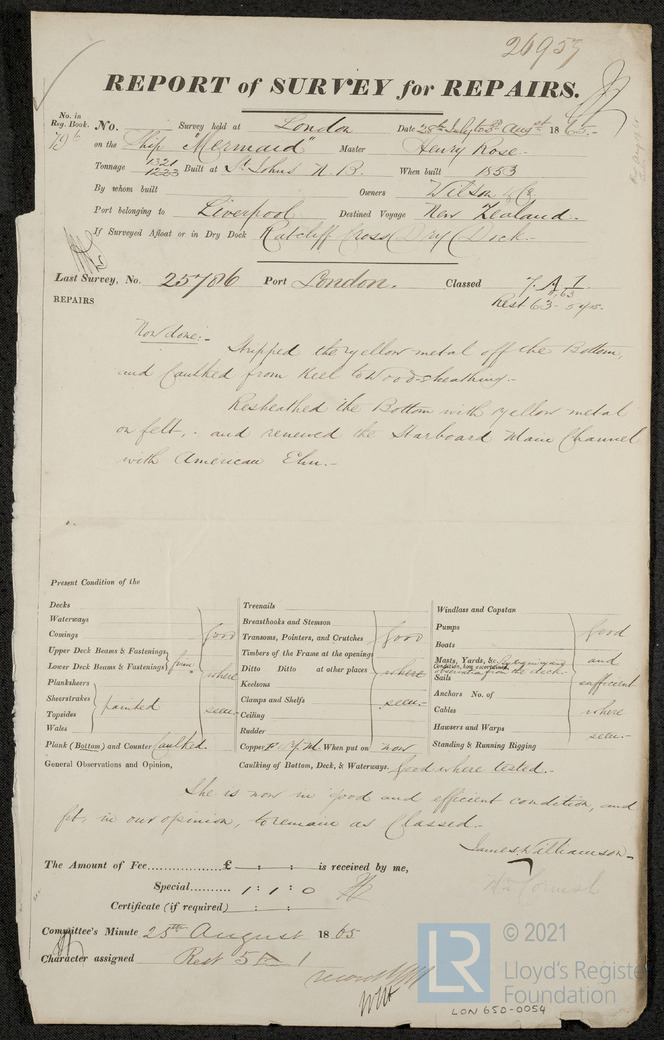 26957
REPORT of SURVEY for REPAIRS.
No. in Reg. Book. No. Survey held at London Date 28th July to 3rd Augst 1865-
796 on the Ship "Mermaid" Master Henry Rose.
Tonnage 1321 1233 Built at St Johns N.B. When built 1853
By whom built Owners Wilson & Co
Port belonging to Liverpool Destined Voyage New Zealand.
If Surveyed Afloat or in Dry Dock Ratcliff Cross Dry Dock.-
Last Survey, No. 25786 Port London. Classed 7 A 1
63
Rest 63- 5 yrs.
REPAIRS
Now done:- Stripped the yellow metal off the Bottom,
and Caulked from Keel to Wood-sheathing.-
Resheathed the Bottom with yellow metal
on felt,- and renewed the Starboard Main Channel
with American Elm.-
Present Condition of the
Decks
Waterways
Comings
Upper Deck Beams & Fastenings
Lower Deck Beams & Fastenings
good where seen-
Planksheers
Sheerstrakes
Topsides
Wales
painted
Plank (Bottom) and Counter Caulked.
Treenails
Breasthooks and Stemson
Transoms, Pointers, and Crutches
Timbers of the Frame at the openings
Ditto Ditto at other places
Keelsons
Clamps and Shelfs
Ceiling
Rudder
good where seen.-
Copper Y.M. When put on now
Windlass and Capstan
Pumps
Boats
Masts, Yards, &c. By enquiry and
Condition, how ascertained, observation from the deck.
Sails
Anchors No. of
Cables
Hawsers and Warps
Standing & Running Rigging
good and sufficient where seen.-
General Observations and Opinion, Caulking of Bottom, Deck, & Waterways. good where tested.-
She is now in good and efficient condition, and
fit, in our opinion, to remain as Classed.-
James Williamson-
Wm Cornish
The Amount of Fee £ : : is received by me,
Special 1 : 1 : 0
Certificate (if required) : :
Committee's Minute 25th August 1865
Character assigned Rest 5 1
LR © 2021
Lloyd's Registe
Foundation
LON 650-0054